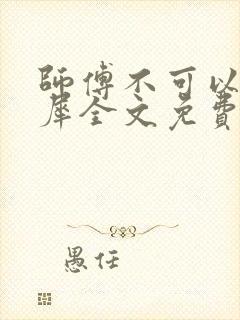 師傅不可以
犀全文免費
愚任